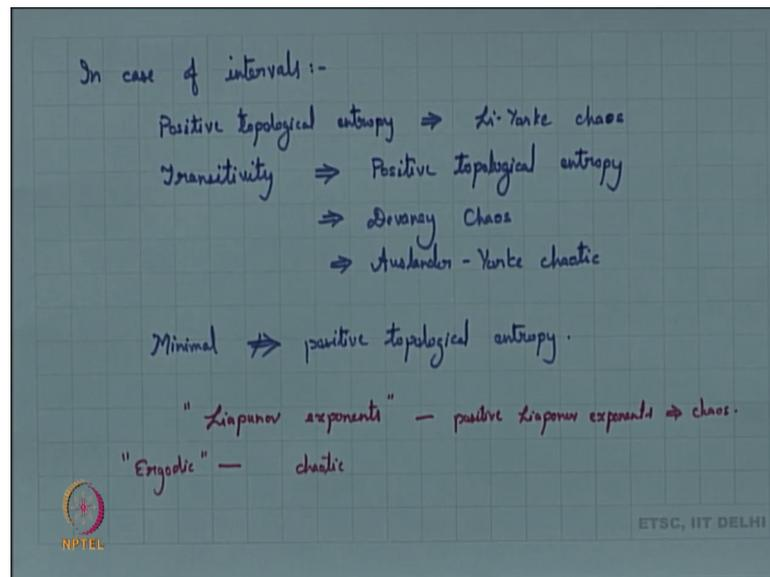 In case of intervals :-
Positive topological entropy ⇒ Li-Yorke chaos
Transitivity ⇒ Positive topological entropy
⇒ Devaney Chaos
⇒ Auslander - Yorke chaotic
Minimal ⇏ positive topological entropy.
"Liapunov exponents" — positive Liapunov exponents ⇒ chaos.
"Ergodic" — chaotic
NPTEL
ETSC, IIT DELHI